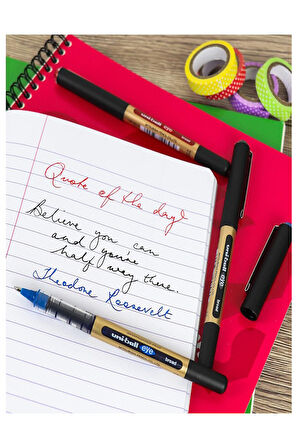 uni-ball eye broad
Quote of the day!
Believe you can
and you're
half way there.
Theodore Roosevelt
uni-ball eye broad
uni-ball eye broad